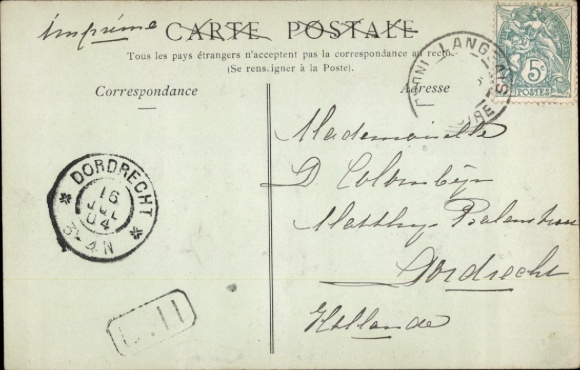 Imprimé
CARTE POSTALE
Tous les pays étrangers n'acceptent pas la correspondance au recto
(Se renseigner à la Poste).
Correspondance
Adresse
5c
POSTES
LANGEAIS
DORDRECHT
16
JUL
04
3-4N
Mademoiselle
D. Colombijn
Dordrecht
Hollande